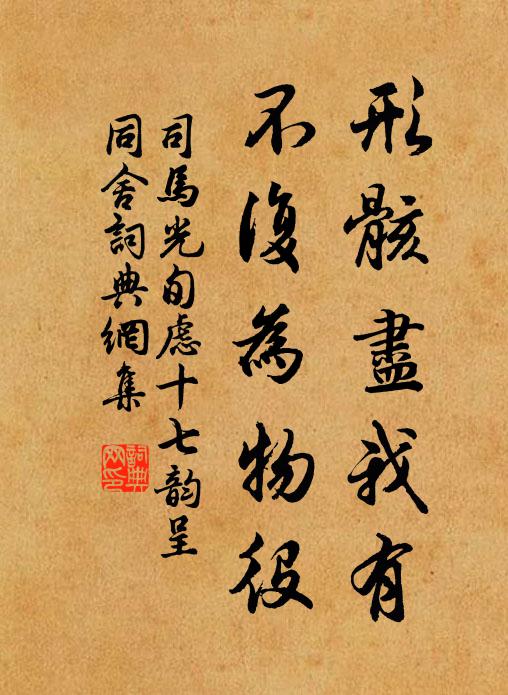 形骸盡我有
不復為物役
司馬光旬慮十七韵呈
同舍詞典網集
詞典網印